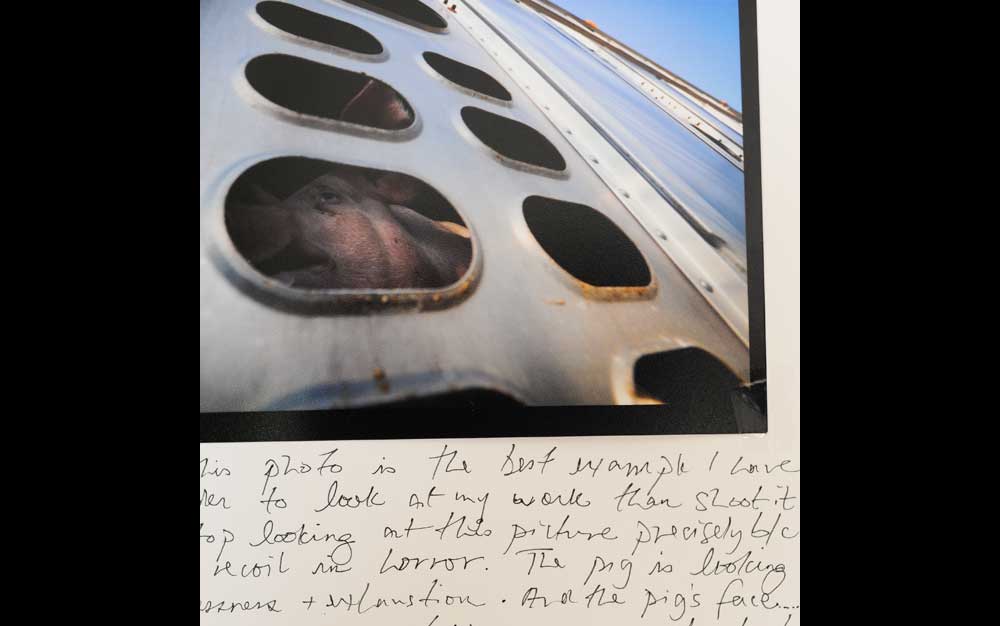 his photo is the best example I have
er to look at my work than shoot it
top looking at this picture precisely b/c
recoil in horror. The pig is looking
essness + exhaustion. And the pig's face...